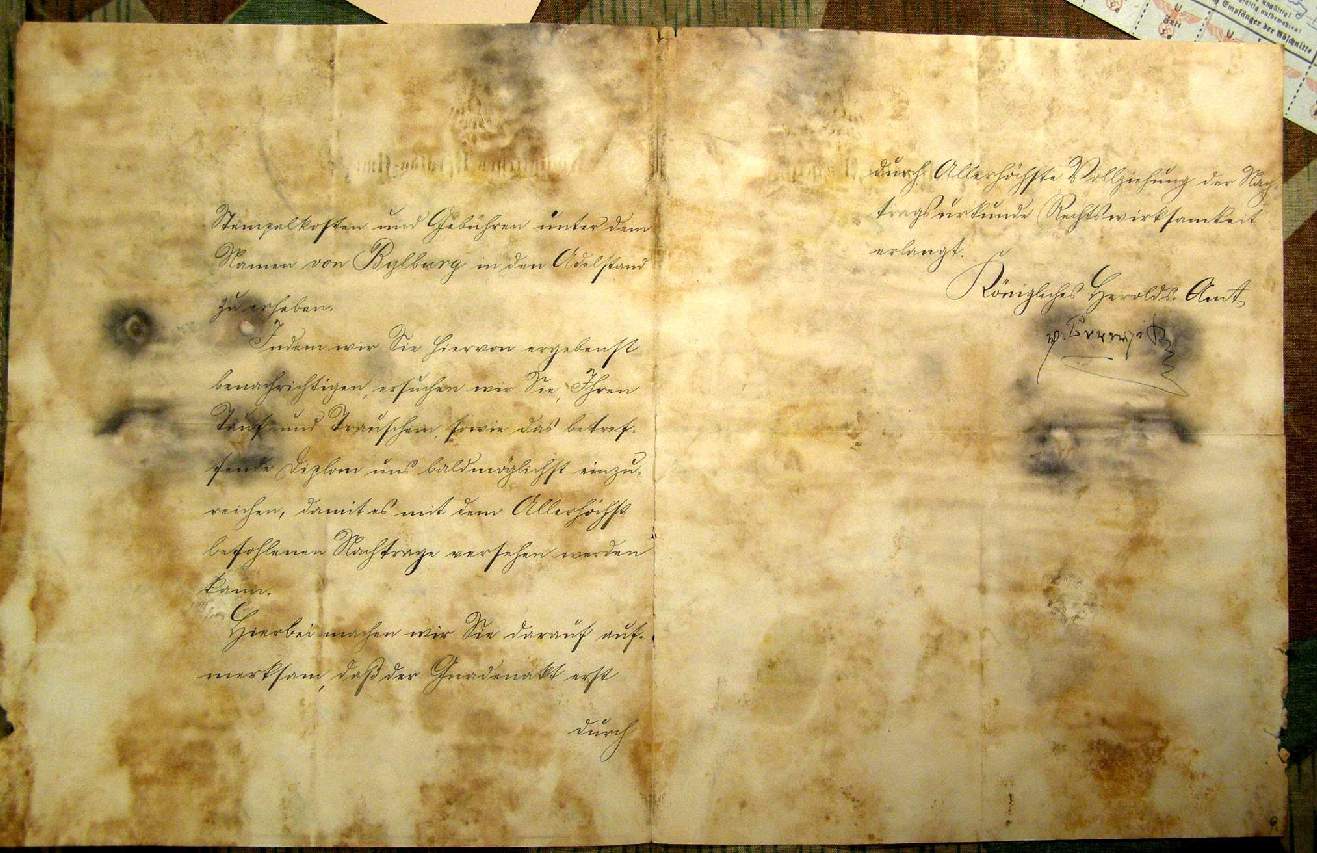 Stempelkosten und Gebühren unter dem
Namen von Bylburg in den Adelstand
zu erheben.
Indem wir Sie hiervon ergebenst
benachrichtigen, ersuchen wir Sie, Ihren
Tauf- und Trauschein, sowie das betref-
fende Diplom uns baldmöglichst einzu-
reichen, damit es mit dem Allerhöchst
befohlenen Nachtrage versehen werden
kann.
Hierbei machen wir Sie darauf auf-
merksam, daß der Gnadenakt erst
durch
durch Allerhöchste Vollziehung der Nach-
tragsurkunde Rechtswirksamkeit
erlangt.
Königliches Herolds-Amt
Empfänger der Abschnitte